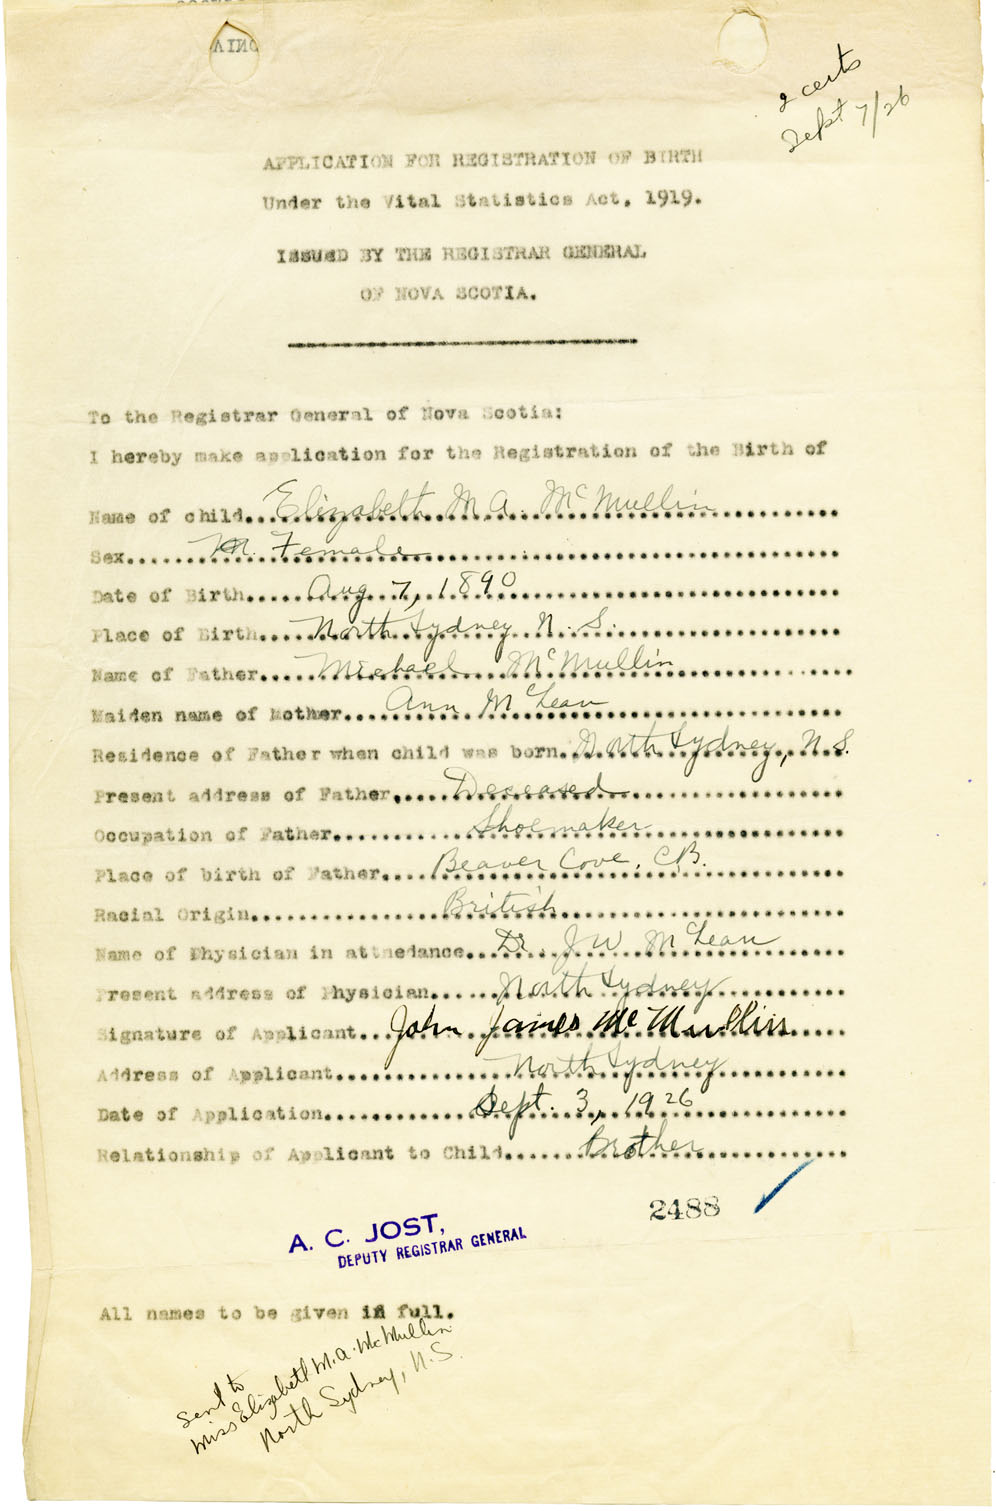 2 certs
Sept 7/26
APPLICATION FOR REGISTRATION OF BIRTH
Under the Vital Statistics Act, 1919.
ISSUED BY THE REGISTRAR GENERAL
OF NOVA SCOTIA.
To the Registrar General of Nova Scotia:
I hereby make application for the Registration of the Birth of
Name of child Elizabeth M. A. McMullin
Sex M. Female
Date of Birth Aug 7, 1890
Place of Birth North Sydney N. S.
Name of Father Michael McMullin
Maiden name of Mother Ann McLean
Residence of Father when child was born North Sydney, N. S.
Present address of Father Deceased
Occupation of Father Shoemaker
Place of birth of Father Beaver Cove, C.B.
Racial Origin British
Name of Physician in attnedance Dr. J W McLean
Present address of Physician North Sydney
Signature of Applicant John James McMullin
Address of Applicant North Sydney
Date of Application Sept. 3, 1926
Relationship of Applicant to Child Brother
2488
A. C. JOST,
DEPUTY REGISTRAR GENERAL
All names to be given in full.
Sent to
Miss Elizabeth M. A. McMullin
North Sydney, N. S.